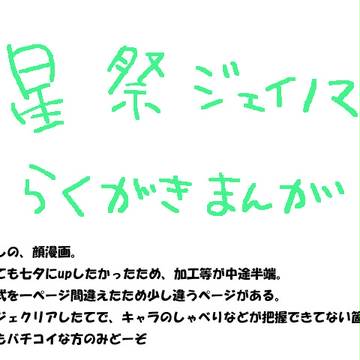 星祭ジェイノマ
らくがきまんが
しの、顔漫画。
ても七夕にupしたかったため、加工等が中途半端。
式を一ページ間違えたため少し違うページがある。
ジェクリアしたてで、キャラのしゃべりなどが把握できてない箇
もバチコイな方のみどーぞ